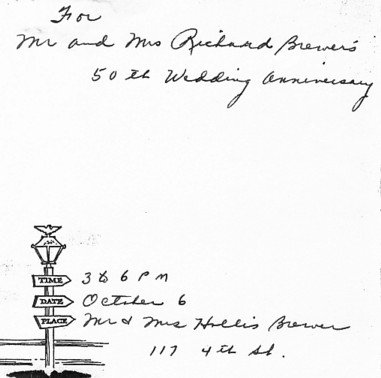 For
Mr and Mrs Richard Brewer's
50th Wedding Anniversary
TIME 3 to 6 PM
DATE October 6
PLACE Mr & Mrs Hollis Brewer
117 4th St.